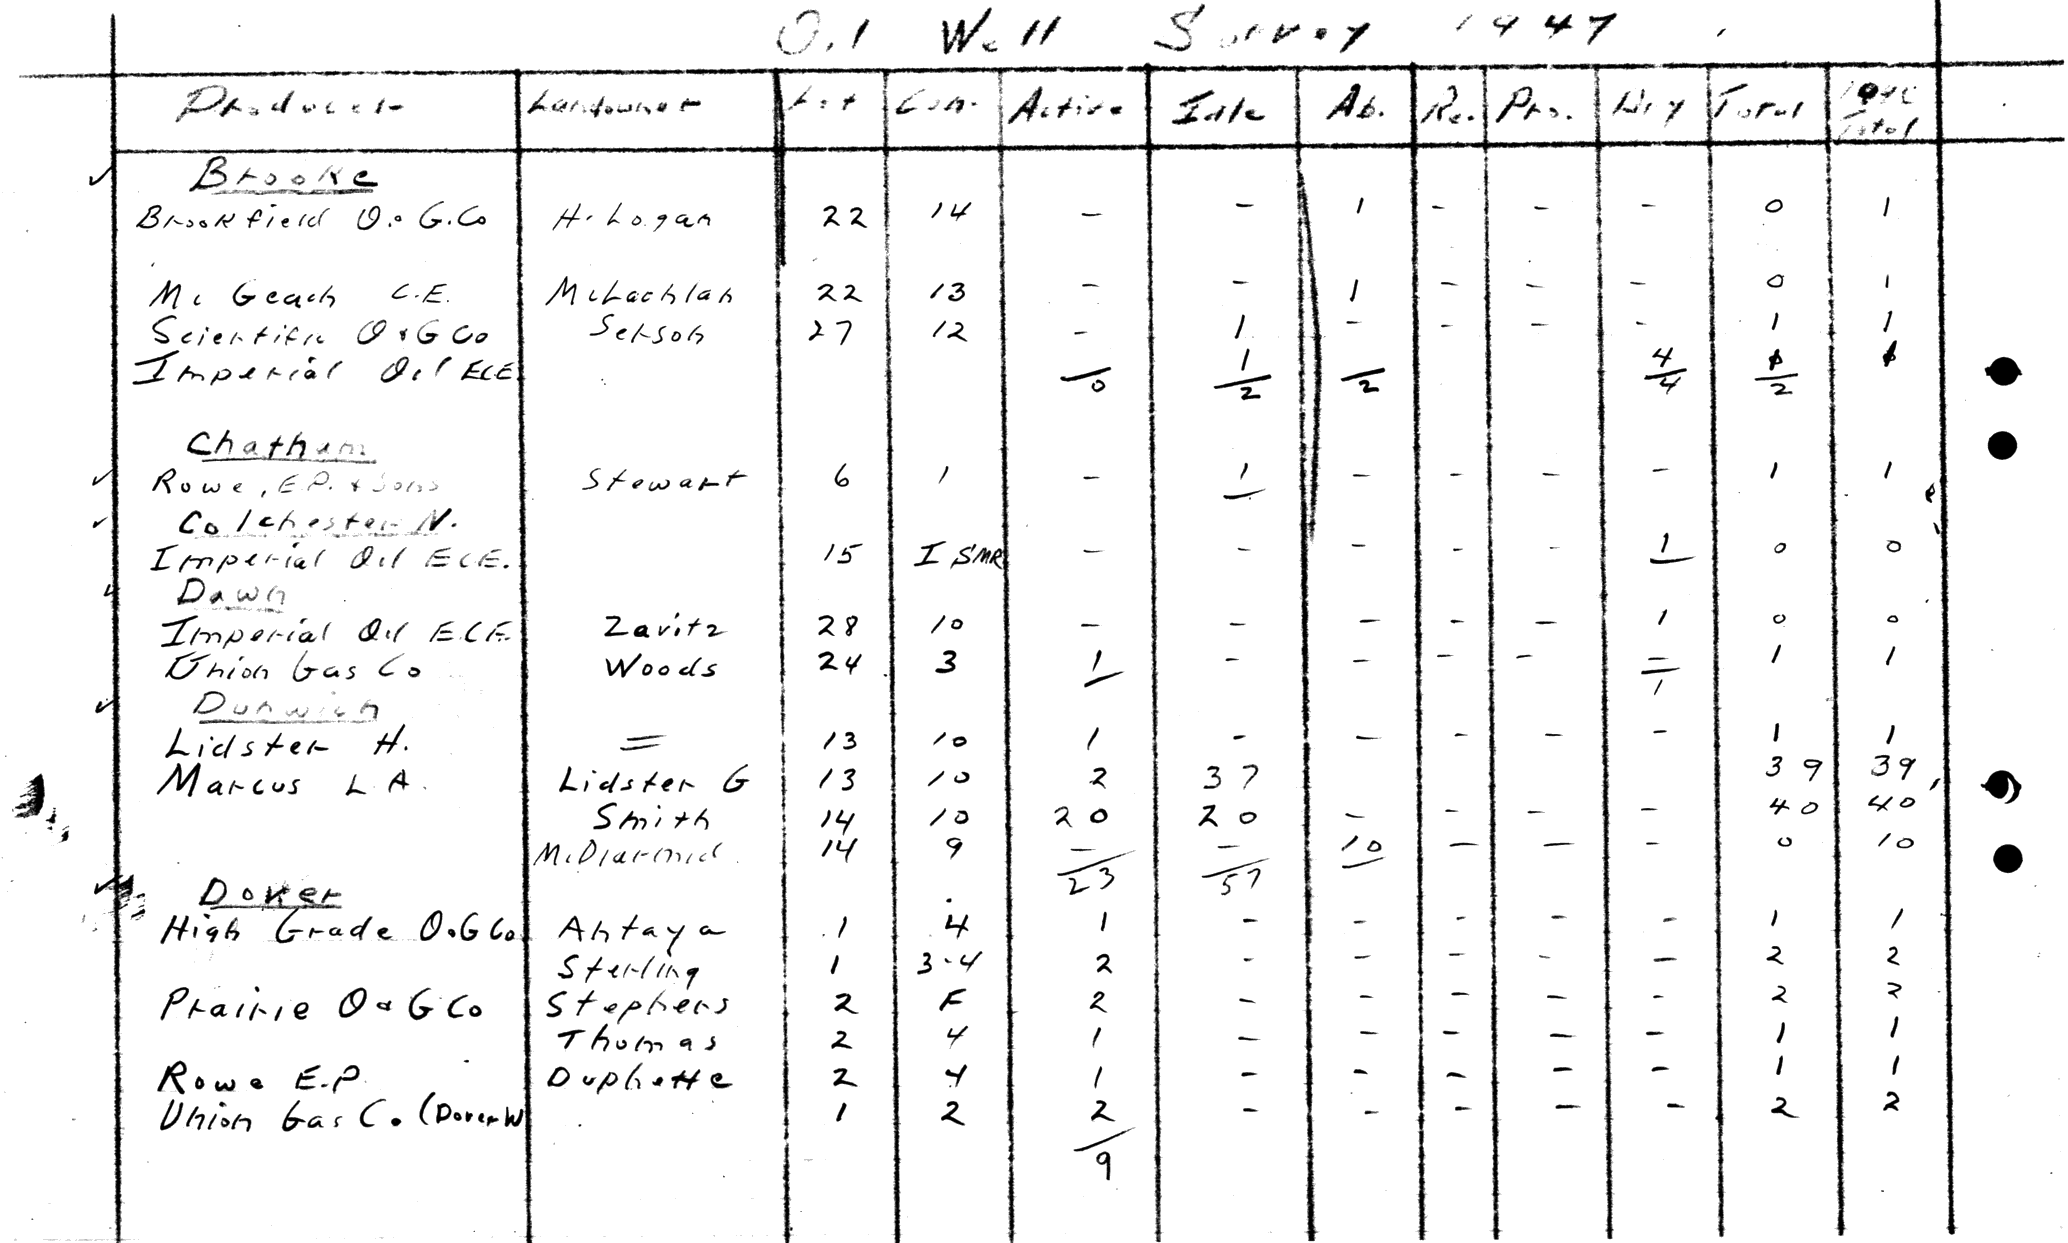 Oil Well Survey 1947
Producer Landowner Lot Con. Active Idle Ab. Re. Pro. Dry Total 1946 Total
Brooke
Brookfield O. & G. Co H. Logan 22 14 - - 1 - - - 0 1
Mc Geach C.E. McLachlan 22 13 - - 1 - - - 0 1
Scientific O & G Co Serson 27 12 - 1 - - - - 1 1
Imperial Oil ECE. 1 4
0 2 2 4 2
Chatham
Rowe, E.P. & Sons Stewart 6 1 - 1 - - - - 1 1
Colchester N.
Imperial Oil E.C.E. 15 I SMR - - - - - 1 0 0
Dawn
Imperial Oil E.C.E. Zavitz 28 10 - - - - - 1 0 0
Union Gas Co Woods 24 3 1 - - - - - 1 1
1
Dunwich
Lidster H. = 13 10 1 - - - - - 1 1
Marcus L.A. Lidster G 13 10 2 37 39 39
Smith 14 10 20 20 - - - - 40 40
McDiarmid 14 9 - - 10 - - - 0 10
23 57
Dover
High Grade O. & G Co. Antaya 1 4 1 - - - - - 1 1
Sterling 1 3-4 2 - - - - - 2 2
Prairie O & G Co Stephens 2 F 2 - - - - - 2 2
Thomas 2 4 1 - - - - - 1 1
Rowe E.P. Duphette 2 4 1 - - - - - 1 1
Union Gas Co. (Dover W 1 2 2 - - - - - 2 2
9